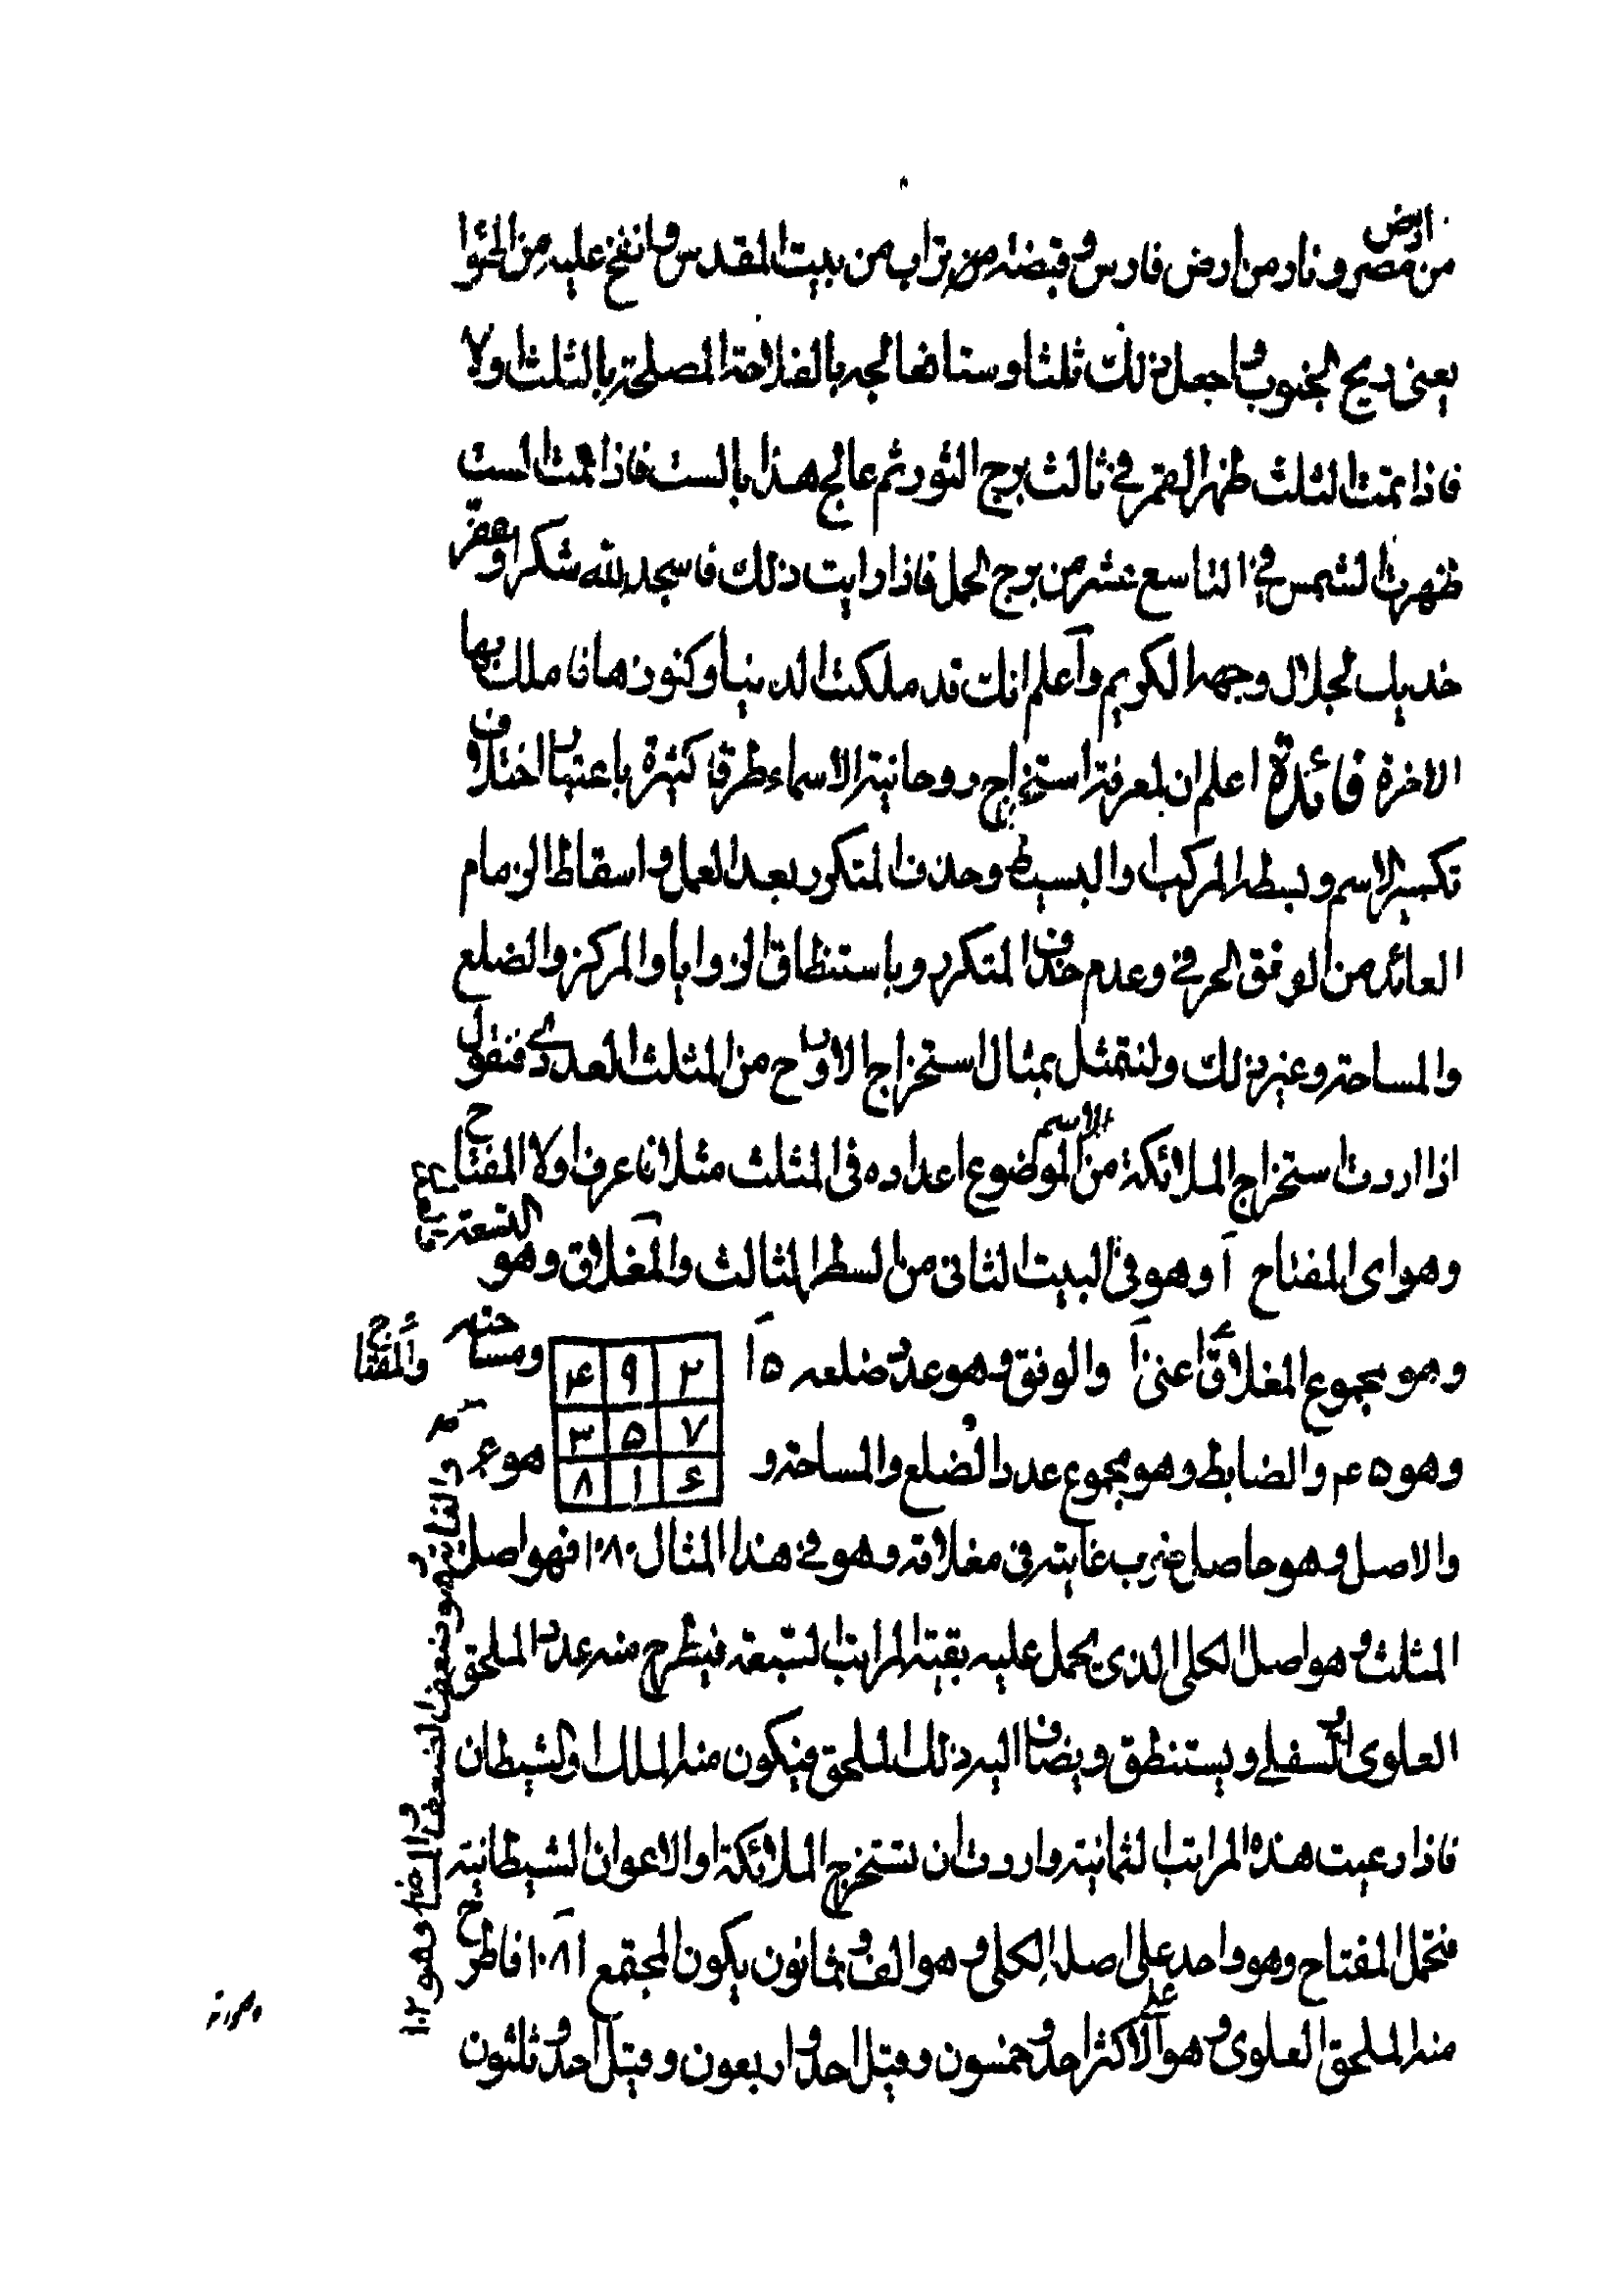 من ارض مصر ونار من ارض فارس وقبضة من تراب من بيت المقدس وانفخ عليه من الحوا
يعنى ريح الجنوب واجعل ذلك ثلثا وستا فعالجه بالفلاحة المصلحة بالثلث اولا
فاذا تمت الثلث ظهر القمر في ثالث برج الثور ثم عالج هذا بالست فاذا تمت الست
ظهرت الشمس في التاسع عشر من برج الحمل فاذا رايت ذلك فاسجد لله شكرا وعفر
خديك لجلال وجهه الكريم واعلم انك قد ملكت الدنيا وكنوزها فاملك بها
الاخرة فائدة اعلم ان لمعرفة استخراج روحانية الاسماء طرقا كثيرة باعتبار اختلاف
تكسير الاسم وبسطه المركب والبسيط وحذف المتكرر بعد العمل واسقاط الزمام
العائد من الوفق الحرفي وعدم حذف المتكرر وباستنطاق الزوايا والمركز والضلع
والمساحة وغير ذلك ولنتمثل بمثال استخراج الارواح من المثلث العددى فنقول
اذا اردت استخراج الملائكة من الاسم الموضوع اعداده فى المثلث مثلا فاعرف اولا المفتاح
وهو اى المفتاح ا وهو فى البيت الثانى من السطر الثالث والمغلاق وهو التسعة
وهو مجموع المغلاق اعنى ا والوفق وهو عدد ضلعه ١٥ ومساحته
٢ ٩ ۴
٧ ۵ ٣
۶ ١ ٨
والمفتاح
وهو ۴۵ والضابط وهو مجموع عدد الضلع والمساحة و هو ۶۰
والغاية وهو ضعف الضعف اى الضابط وهو ١٢٠
والاصل وهو حاصل ضرب غايته فى مغلاقه وهو في هذا المثال ١٠٨٠ فهو اصل
المثلث وهو اصل الكلى الذى يحمل عليه بقية المراتب السبعة فيطرح منه عدد الملحق
العلوى او السفلى ويستنطق ويضاف اليه ذلك الملحق فيكون منه الملك والشيطان
فاذا رعيت هذه المراتب الثمانية واردت ان تستخرج الملائكة او الاعوان الشيطانية
فتحمل المفتاح وهو واحد على اصله الكلى وهو الف وثمانون يكون المجتمع ١٠٨١ فاطرح
منه الملحق العلوى وهو على الاكثر احد وخمسون وقيل احد واربعون وقيل احد وثلثون